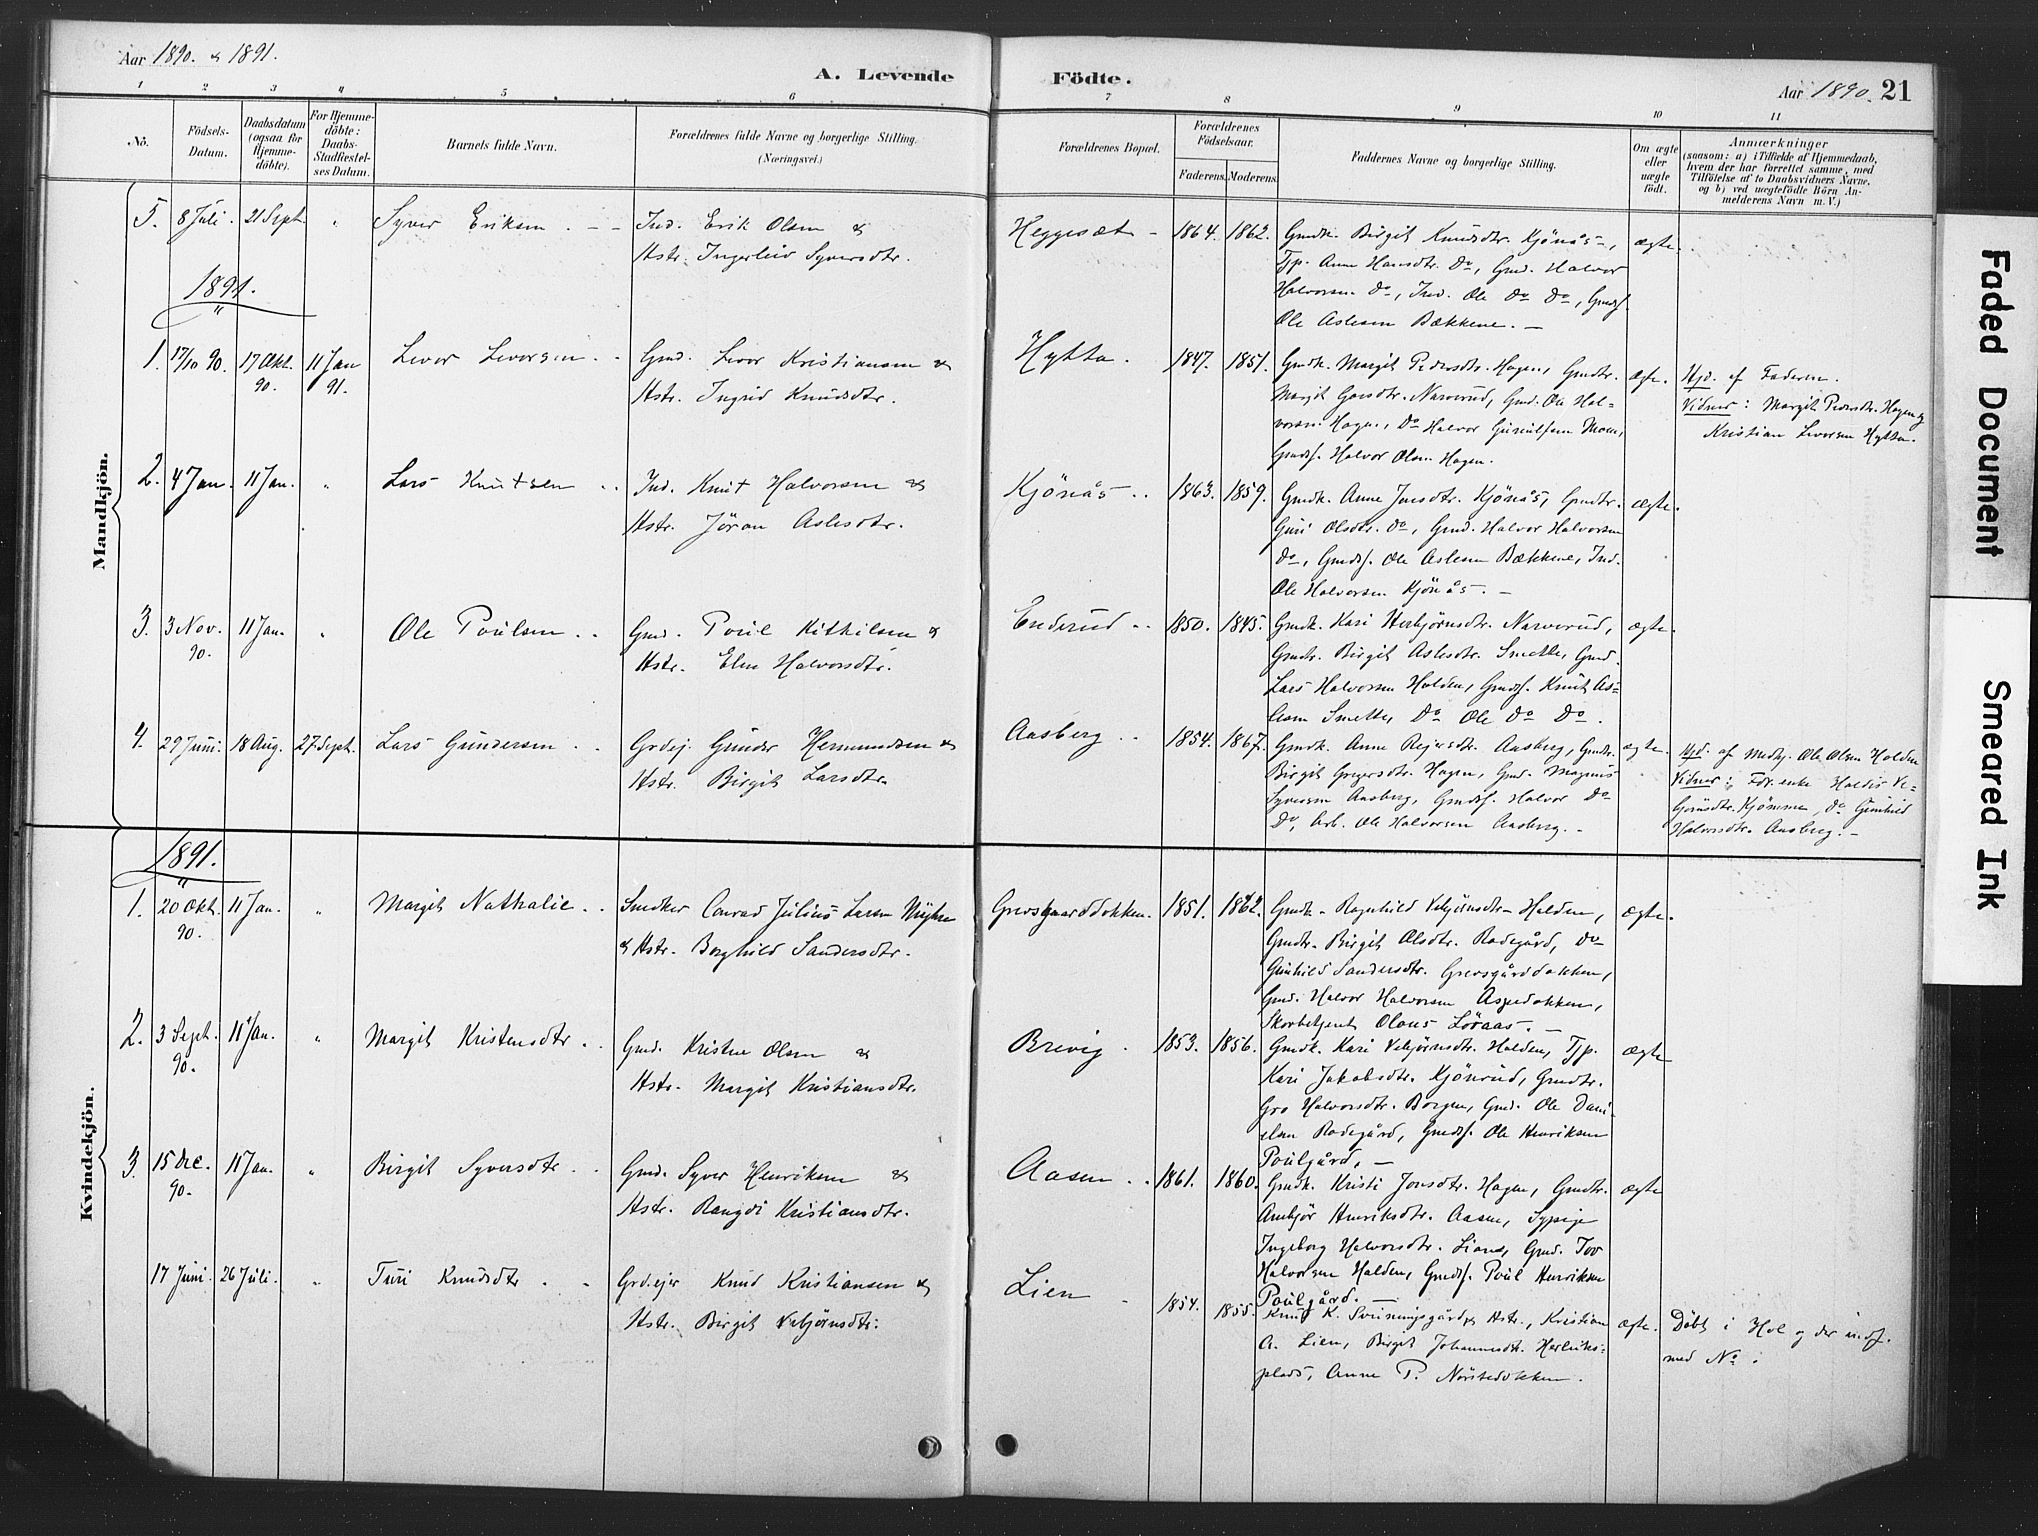 Aar 1890. & 1891.
A. Levende Födte.
Aar 1890. 21
1 2 3 4 5 6 7 8 9 10 11
No.
Födsels-Datum.
Daabsdatum (ogsaa for Hjemme-döbte).
For Hjemme-döbte: Daabs-Stadfæstel-ses Datum.
Barnets fulde Navn.
Forældrenes fulde Navne og borgerlige Stilling. (Næringsvei.)
Forældrenes Bopæl.
Forældrenes Födselsaar.
Faderens. Moderens.
Faddernes Navne og borgerlige Stilling.
Om ægte eller uægte födt.
Anmærkninger
(saasom: a) i Tilfælde af Hjemmedaab,
hvem der har forrettet samme, med
Tilföielse af to Daabsvidners Navne,
og b) ved uægtefödte Börn An-
melderens Navn m. V.)
Mandkjön.
5. 8 Juli. 21 Sept. " Syver Eriksen - -
Ind. Erik Olsen &
Hstr. Ingerleiv Syversdtr.
Heggesæt - 1864. 1862.
Gmdk. Birgit Knudsdtr. Kjönås,
Tjp. Anne Hansdtr. Do, Gmd. Halvor
Halvorsen Do, Ind. Ole Do Do, Gmds.
Ole Aslesen Bækkene. -
ægte.
1891.
1. 17/10 90. 17 Okt. 90. 11 Jan 91. Levor Levorsen. .
Gmd. Levor Kristiansen &
Hstr. Ingrid Knudsdtr.
Hytta. 1847. 1851.
Gmdk. Margit Pedersdtr. Hagen, Gmdtr.
Margit Narverud, Gmd. Ole Hal-
vorsen Hagen, Do Halvor Moen,
Gmds. Halvor Olsen Hagen.
ægte.
Hjd. af Faderen.
Vidner: Margit Pedersdtr. Hagen og
Kristian Levorsen Hytta.
2. 4 Jan. 11 Jan. " Lars Knutsen . .
Ind. Knut Halvorsen &
Hstr. Jöran Aslesdtr.
Kjönås . . 1863. 1859.
Gmdk. Anne Jonsdtr. Kjönås, Gmdtr.
Guri Olsdtr. Do, Gmd. Halvor Halvorsen
Do, Gmds. Ole Aslesen Bækkene, Ind.
Ole Halvorsen Kjönås. -
ægte.
3. 3 Nov. 90. 11 Jan. " Ole Poulsen . .
Gmd. Poul Kittilsen &
Hstr. Elen Halvorsdtr.
Enderud . . 1850. 1845.
Gmdk. Kari Herbjörnsdtr. Narverud,
Gmdtr. Birgit Aslesdtr. Smette, Gmd.
Lars Halvorsen Halden, Gmds. Knut As-
lesen Smette, Do Ole Do Do.
ægte.
4. 29 Juni. 18 Aug. 27. Sept. Lars Gundersen . .
Grdej. Gunder Hermundsen &
Hstr. Birgit Larsdtr.
Aasberg . . 1854. 1867.
Gmdk. Anne Aasberg, Gmdtr.
Birgit Gregersdtr. Hagen, Gmd. Magnus
Syversen Aasberg, Gmds. Halvor Do
Do, Arb. Ole Halvorsen Aasberg. -
ægte.
Hjd. af Ole Olsen Halden
Vidner: enke Haldis
Kjömme, Do Gunhild
Halvorsdtr. Aasberg. -
Kvindekjön.
1891.
1. 20 Okt. 90. 11 Jan. " Margit Nathalie . .
Snedker Conrad Julius Larsen
& Hstr. Borghild Sandersdtr.
Grevsgaarddokken. 1851. 1862.
Gmdk. Ragnhild Vebjörnsdtr. Halden,
Gmdtr. Birgit Olsdtr. Rodegård, Do
Gunhild Sandersdtr. Grevsgårddokken,
Gmd. Halvor Halvorsen Aspedokken,
Skovbetjent Olaus Löraas. -
ægte.
2. 3 Sept. 90. 11 Jan. " Margit Kristensdtr . .
Gmd. Kristen Olsen &
Hstr. Margit Kristiansdtr.
Brevig . 1853. 1856.
Gmdk. Kari Vebjörnsdtr. Halden, Tjp.
Kari Jakobsdtr. Kjönrud, Gmdtr.
Gro Halvorsdtr. Borgen, Gmd. Ole Dani-
elsen Rodegård, Gmds. Ole Henriksen
Poulgård, -
ægte
3. 15 Dec. 90. 11 Jan. " Birgit Syversdtr . .
Gmd. Syver Henriksen &
Hstr. Rangdi Kristiansdtr.
Aasen . . 1861. 1860.
Gmdk. Kristi Jonsdtr. Hagen, Gmdtr.
Ambjör Henriksdtr. Aasen, Sypige
Ingeborg Halvorsdtr. Liane, Gmd. Tov
Halvorsen Halden, Gmds. Poul Henriksen
Poulgård. -
ægte
17 Juni. 26 Juli. " Turi Knudsdtr . .
Grdejer Knud Kristiansen &
Hstr. Birgit Vebjörnsdtr.
Lien - 1854. 1855.
Knud K. Sveinungsgård & Hstr., Kristian
A. Lien, Birgit Johannesdtr.
plads, Anne P. Nörstedokken.
ægte.
Döbt i Hol og der indf.
med No :
Faded Document
Smeared Ink